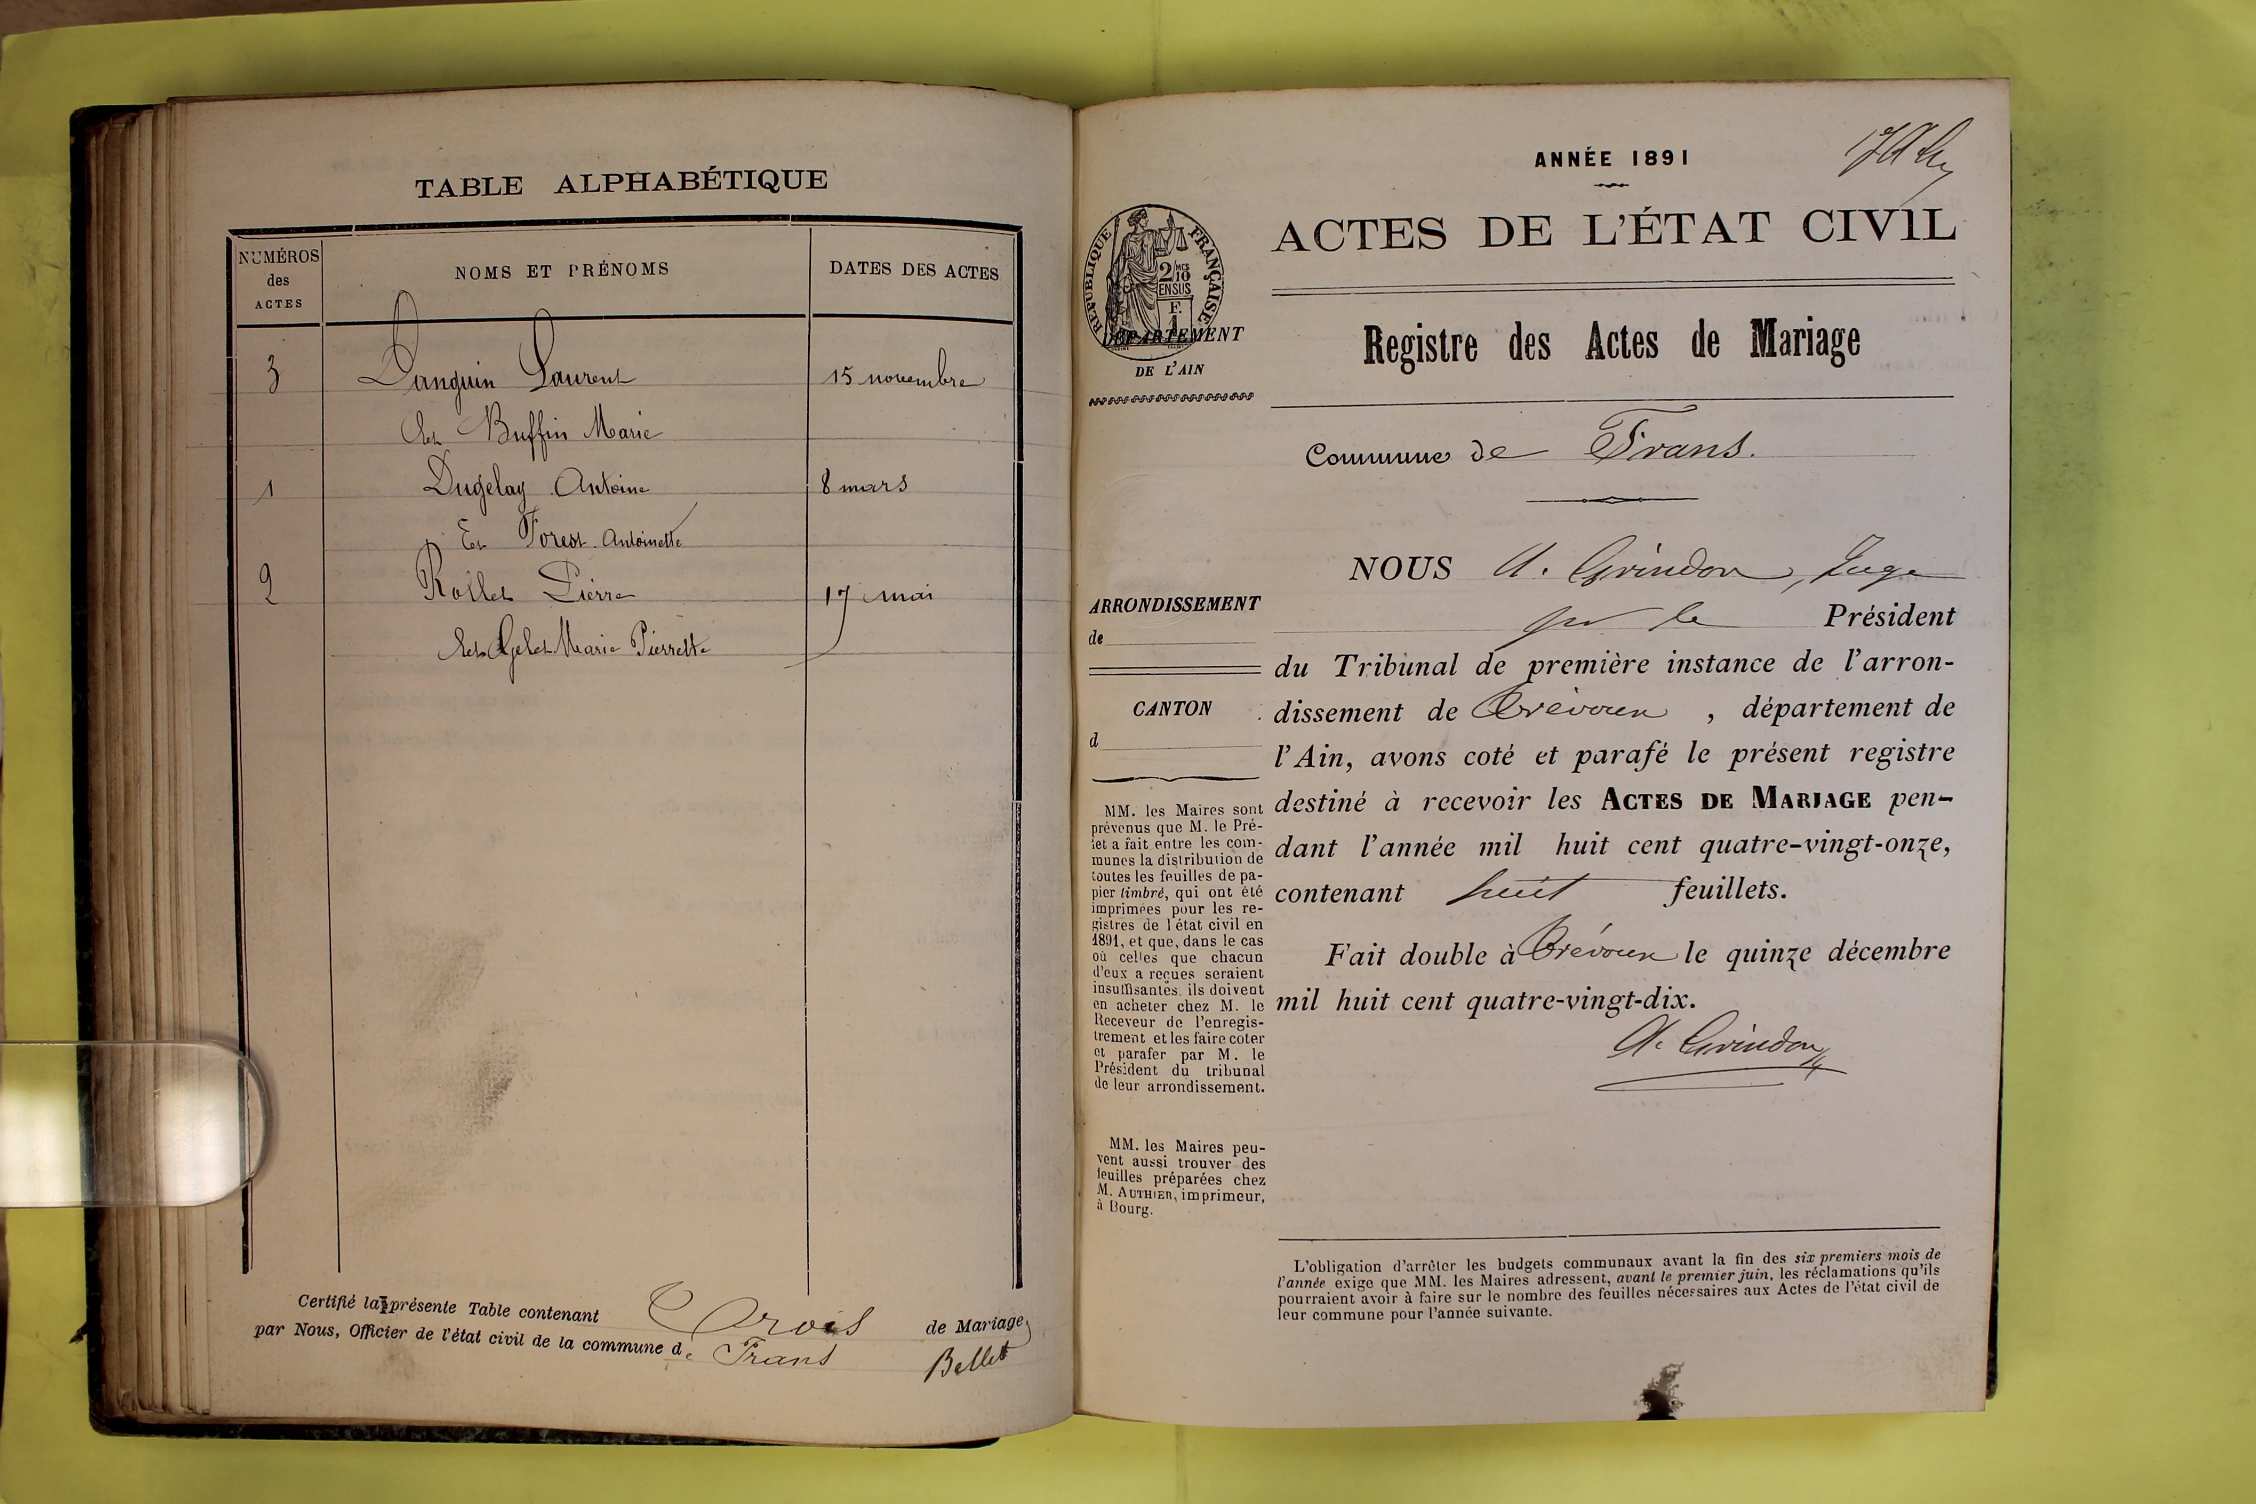 TABLE ALPHABÉTIQUE
NUMÉROS
des
ACTES
NOMS ET PRÉNOMS
DATES DES ACTES
3 Danguin Laurent 15 novembre
et Buffin Marie
1 Dugelay Antoine 8 mars
Et Forest Antoinette
2 Rollet Pierre 17 mai
et Gelet Marie Pierrette
Certifié la présente Table contenant Trois de Mariage
par Nous, Officier de l'état civil de la commune de Frans
Bellet
ANNÉE 1891
ACTES DE L'ÉTAT CIVIL
RÉPUBLIQUE FRANÇAISE
2/10 MES
EN SUS
F.
1
DÉPARTEMENT
DE L'AIN
Registre des Actes de Mariage
Commune de Frans.
ARRONDISSEMENT
de
CANTON
d
MM. les Maires sont
prévenus que M. le Pré-
fet a fait entre les com-
munes la distribution de
toutes les feuilles de pa-
pier timbré, qui ont été
imprimées pour les re-
gistres de l'état civil en
1891, et que, dans le cas
où celles que chacun
d'eux a reçues seraient
insuffisantes, ils doivent
en acheter chez M. le
Receveur de l'enregis-
trement et les faire coter
et parafer par M. le
Président du tribunal
de leur arrondissement.
MM. les Maires peu-
vent aussi trouver des
feuilles préparées chez
M. AUTHIER, imprimeur,
à Bourg.
NOUS A. Grindon, Juge
pr le Président
du Tribunal de première instance de l'arron-
dissement de Trévoux, département de
l'Ain, avons coté et parafé le présent registre
destiné à recevoir les ACTES DE MARIAGE pen-
dant l'année mil huit cent quatre-vingt-onze,
contenant huit feuillets.
Fait double à Trévoux le quinze décembre
mil huit cent quatre-vingt-dix.
A. Grindon
L'obligation d'arrêter les budgets communaux avant la fin des six premiers mois de
l'année exige que MM. les Maires adressent, avant le premier juin, les réclamations qu'ils
pourraient avoir à faire sur le nombre des feuilles nécessaires aux Actes de l'état civil de
leur commune pour l'année suivante.